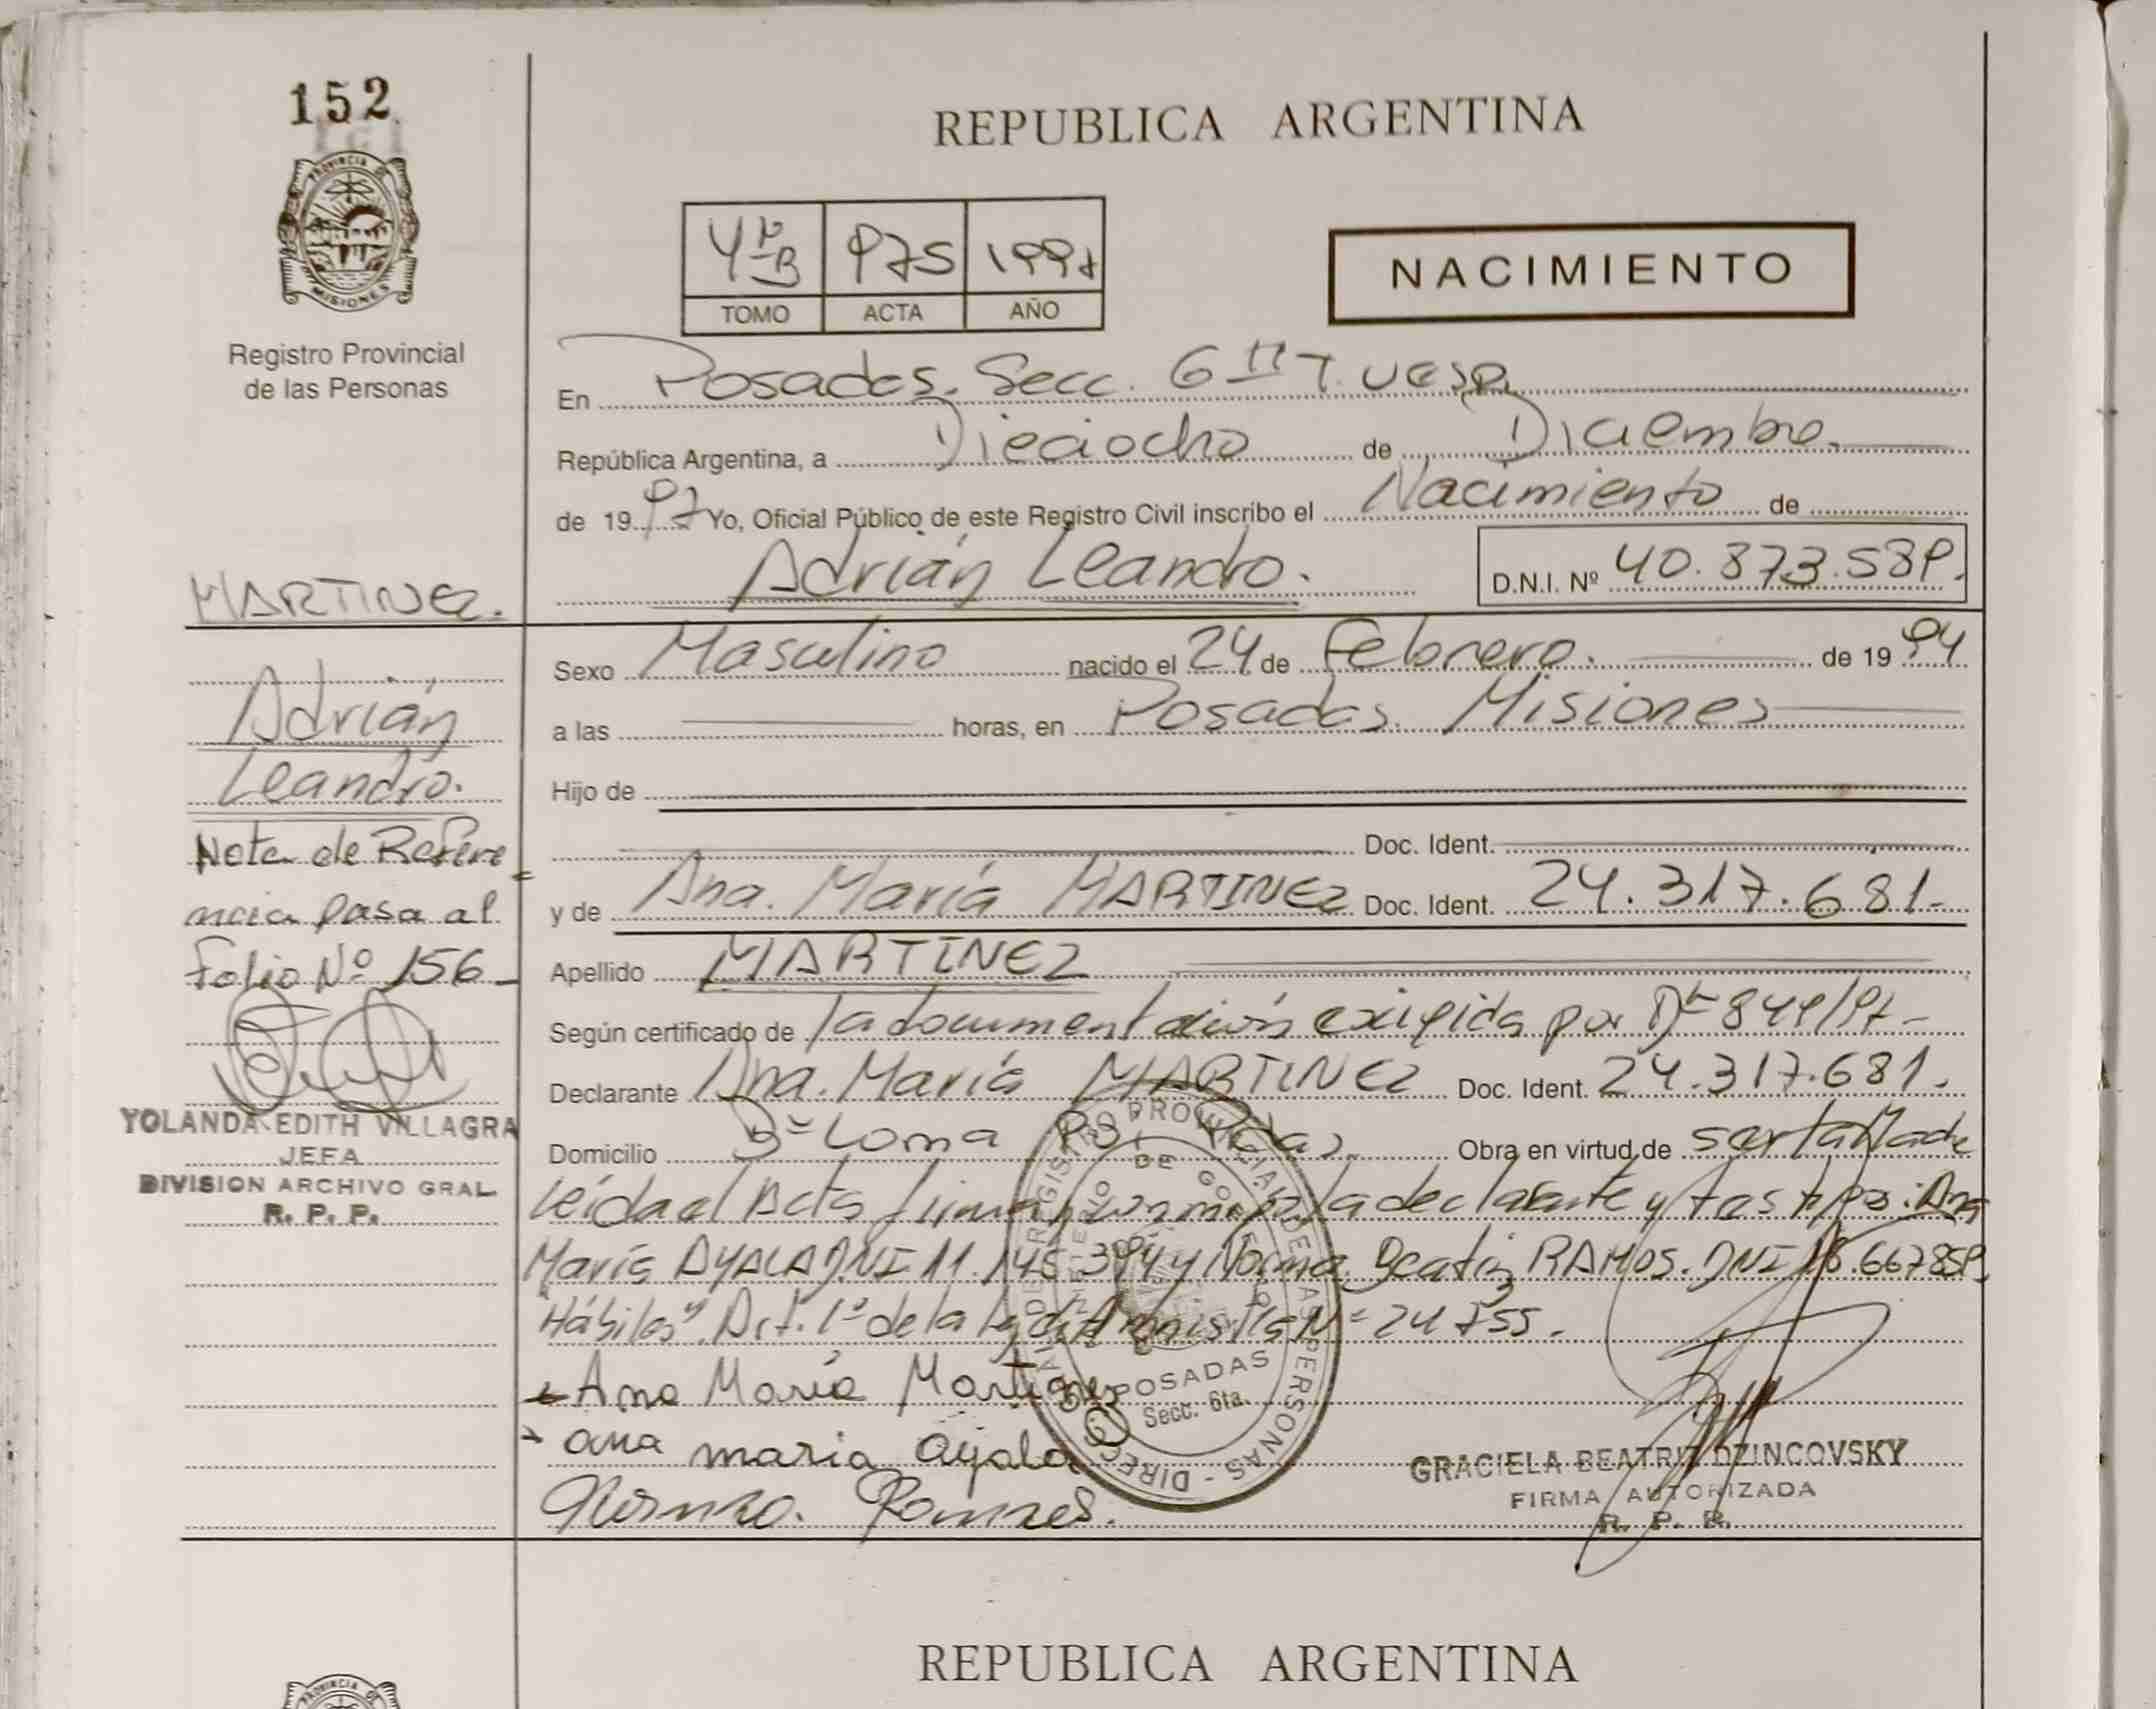 152
PROVINCIA DE
MISIONES
Registro Provincial
de las Personas
REPUBLICA ARGENTINA
975 1997
TOMO ACTA AÑO
NACIMIENTO
En Posadas. Secc. 6
República Argentina, a Dieciocho de Diciembre.
de 1997 Yo, Oficial Público de este Registro Civil inscribo el Nacimiento de
Adrián Leandro. D.N.I. Nº 40.873.589.
MARTINEZ.
Adrián
Leandro.
Nota de Refere
ncia pasa al
Folio Nº 156
YOLANDA EDITH VILLAGRA
JEFA
DIVISION ARCHIVO GRAL.
R. P. P.
Sexo Masculino nacido el 24 de Febrero. de 1994
a las horas, en Posadas. Misiones
Hijo de
Doc. Ident.
y de Ana. María MARTINEZ Doc. Ident. 24.317.681.-
Apellido MARTINEZ
Según certificado de la documentación exigida por 849/97-
Declarante Ana. María MARTINEZ Doc. Ident. 24.317.681.
Domicilio Loma Obra en virtud de
leída el Acta firman la declarante y
María AYALA DNI 11. y Norma Beatriz RAMOS. DNI
Hábiles". Art. 1º de la Nº 24755.
Ana María Martinez
ana maria ayala
REGISTRO PROVINCIAL DE LAS PERSONAS - DIRECC
POSADAS
Secc. 6ta.
GRACIELA BEATRIZ DZINCOVSKY
FIRMA AUTORIZADA
R. P. P.
REPUBLICA ARGENTINA
PROVINCIA DE